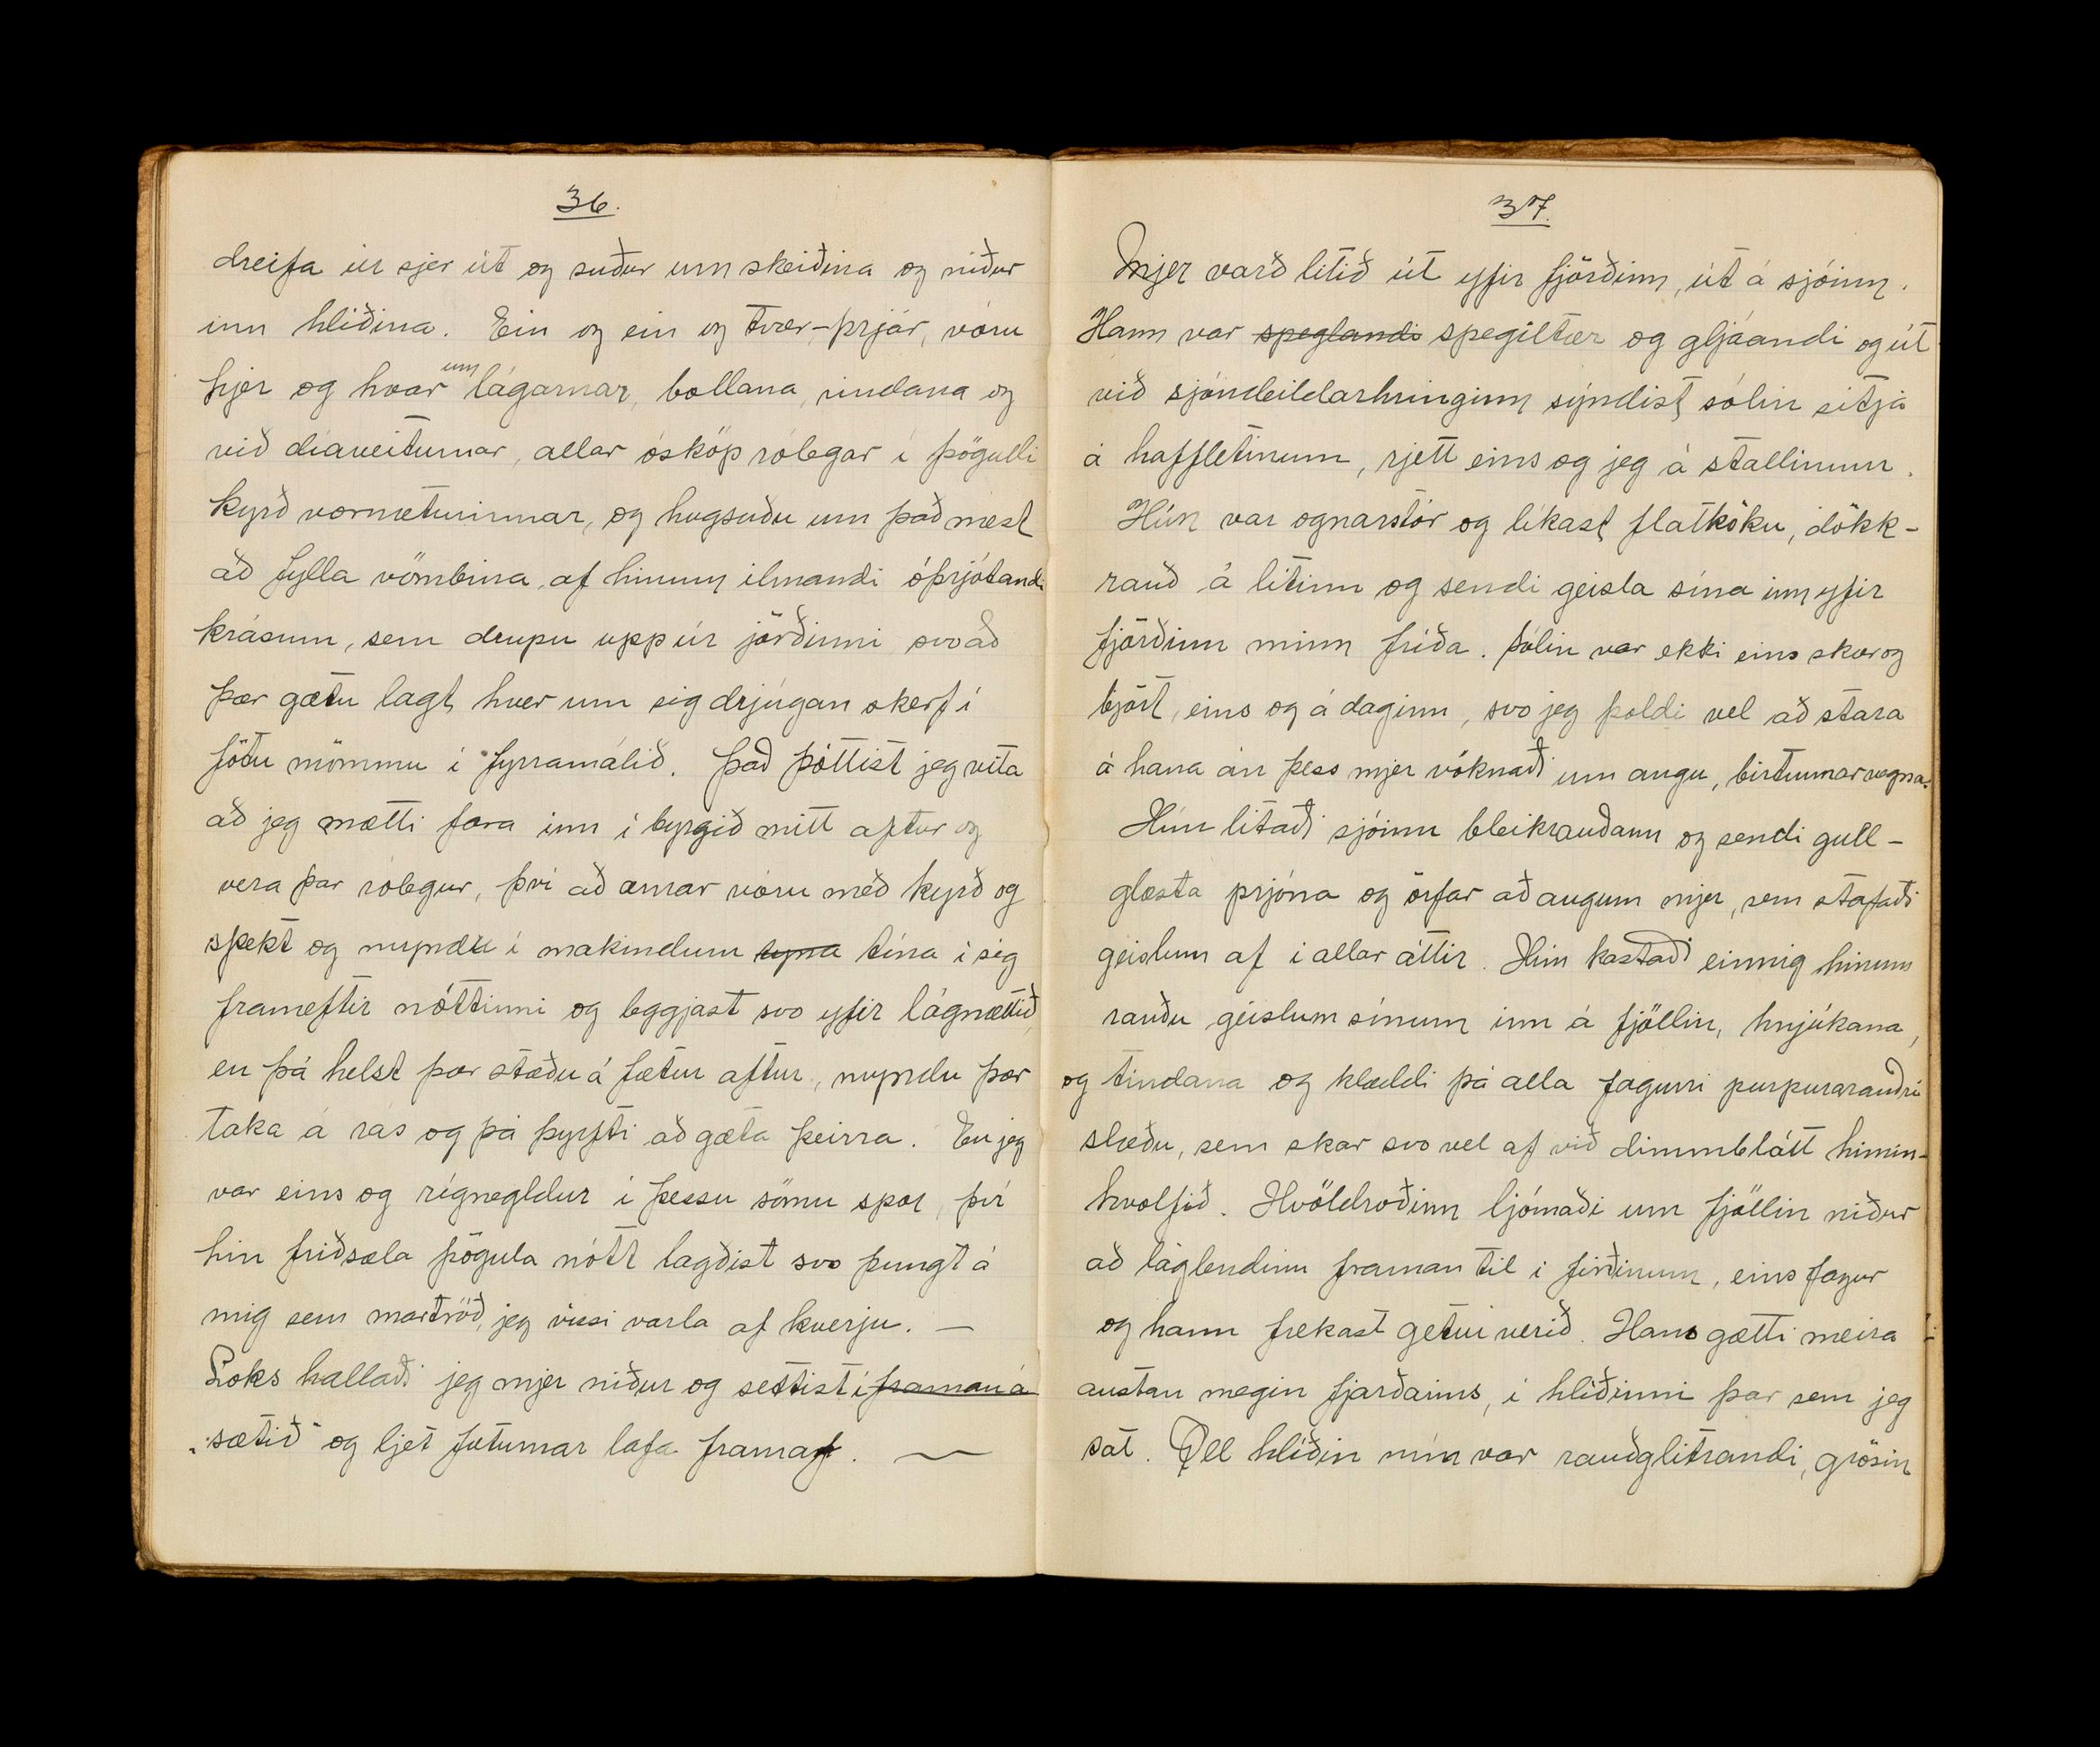 36.
dreifa úr sjer út og suður um skeiðina og niður
inn hlíðina. Ein og ein og tvær-þrjár, vóru
hjer og hvar um lágarnar, bollana, rindana og
við díaveiturnar, allar ósköp rólegar í þögulli
kyrð vornæturinnar, og hugsuðu um það mest
að fylla vömbina af hinum ilmandi óþrjótandi
krásum, sem drupu upp úr jörðinni svo að
þær gætu lagt hver um sig drjúgan skerf í
fötu mömmu í fyrramálið. Það þóttist jeg vita
að jeg mætti fara inn í byrgið mitt aftur og
vera þar rólegur, því að ærnar vóru með kyrð og
spekt og myndu í makindum tyna tína í sig
frameftir nóttinni og leggjast svo yfir lágnættið
en þá helst þær stæðu á fætur aftur, myndu þær
taka á rás og þá þyrfti að gæta þeirra. En jeg
var eins og rígnegldur í þessu sömu spor, því
hin friðsæla þögula nótt lagðist svo þungt á
mig sem martröð, jeg vissi varla af hverju. —
Loks hallaði jeg mjer niður og settist í framan á
„sætið" og ljet fæturnar lafa framaf. —
37.
Mjer varð litið út yfir fjörðinn, út á sjóinn.
Hann var speglandi spegiltær og gljáandi og út
við sjóndeildarhringinn sýndist sólin sitja
á haffletinum, rjett eins og jeg á stallinum.
Hún var ognarstór og líkast flatköku, dökk-
rauð á litinn og sendi geisla sína inn yfir
fjörðinn minn fríða. Sólin var ekki eins skær og
björt, eins og á daginn, svo jeg þoldi vel að stara
á hana án þess mjer vöknaði um augu, birtunnar vegna.
Hún litaði sjóinn bleikrauðann og sendi gull-
glæsta prjóna og örfar að augum mjer, sem stafaði
geislum af í allar áttir. Hún kastaði einnig hinum
rauðu geislum sínum inn á fjöllin, hnjúkana,
og tindana og klæddi þá alla fagurri purpurarauðri
slæðu, sem skar svo vel af við dimmblátt himin-
hvolfið. Kvöldroðinn ljómaði um fjöllin niður
að láglendinu framan til í firðinum, eins fagur
og hann frekast getur verið. Hans gætti meira
austan megin fjarðarins, í hlíðinni þar sem jeg
sat. Öll hlíðin mín var rauðglitrandi, grösin